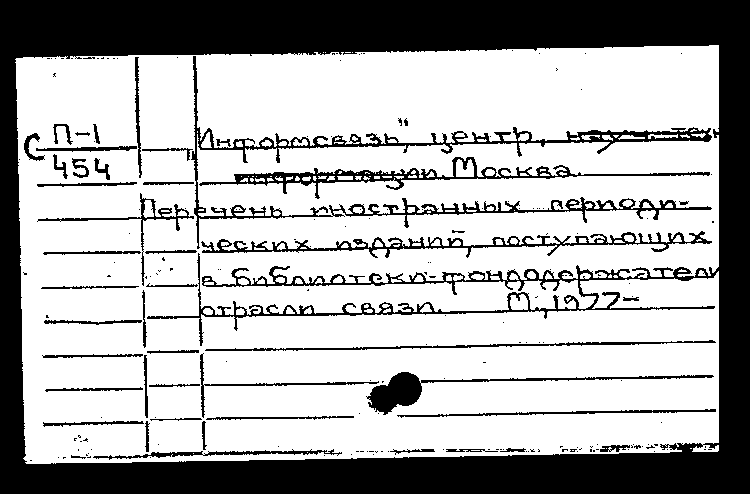 С П-1
454
"Информсвязь", центр, науч. техн.
информации. Москва.
Перечень иностранных периоди-
ческих изданий, поступающих
в библиотеки-фондодержатели
отрасли связи. М., 1977-